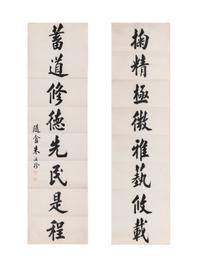 掬精極微雅藝攸載
蓄道修德先民是程
朱汝珍